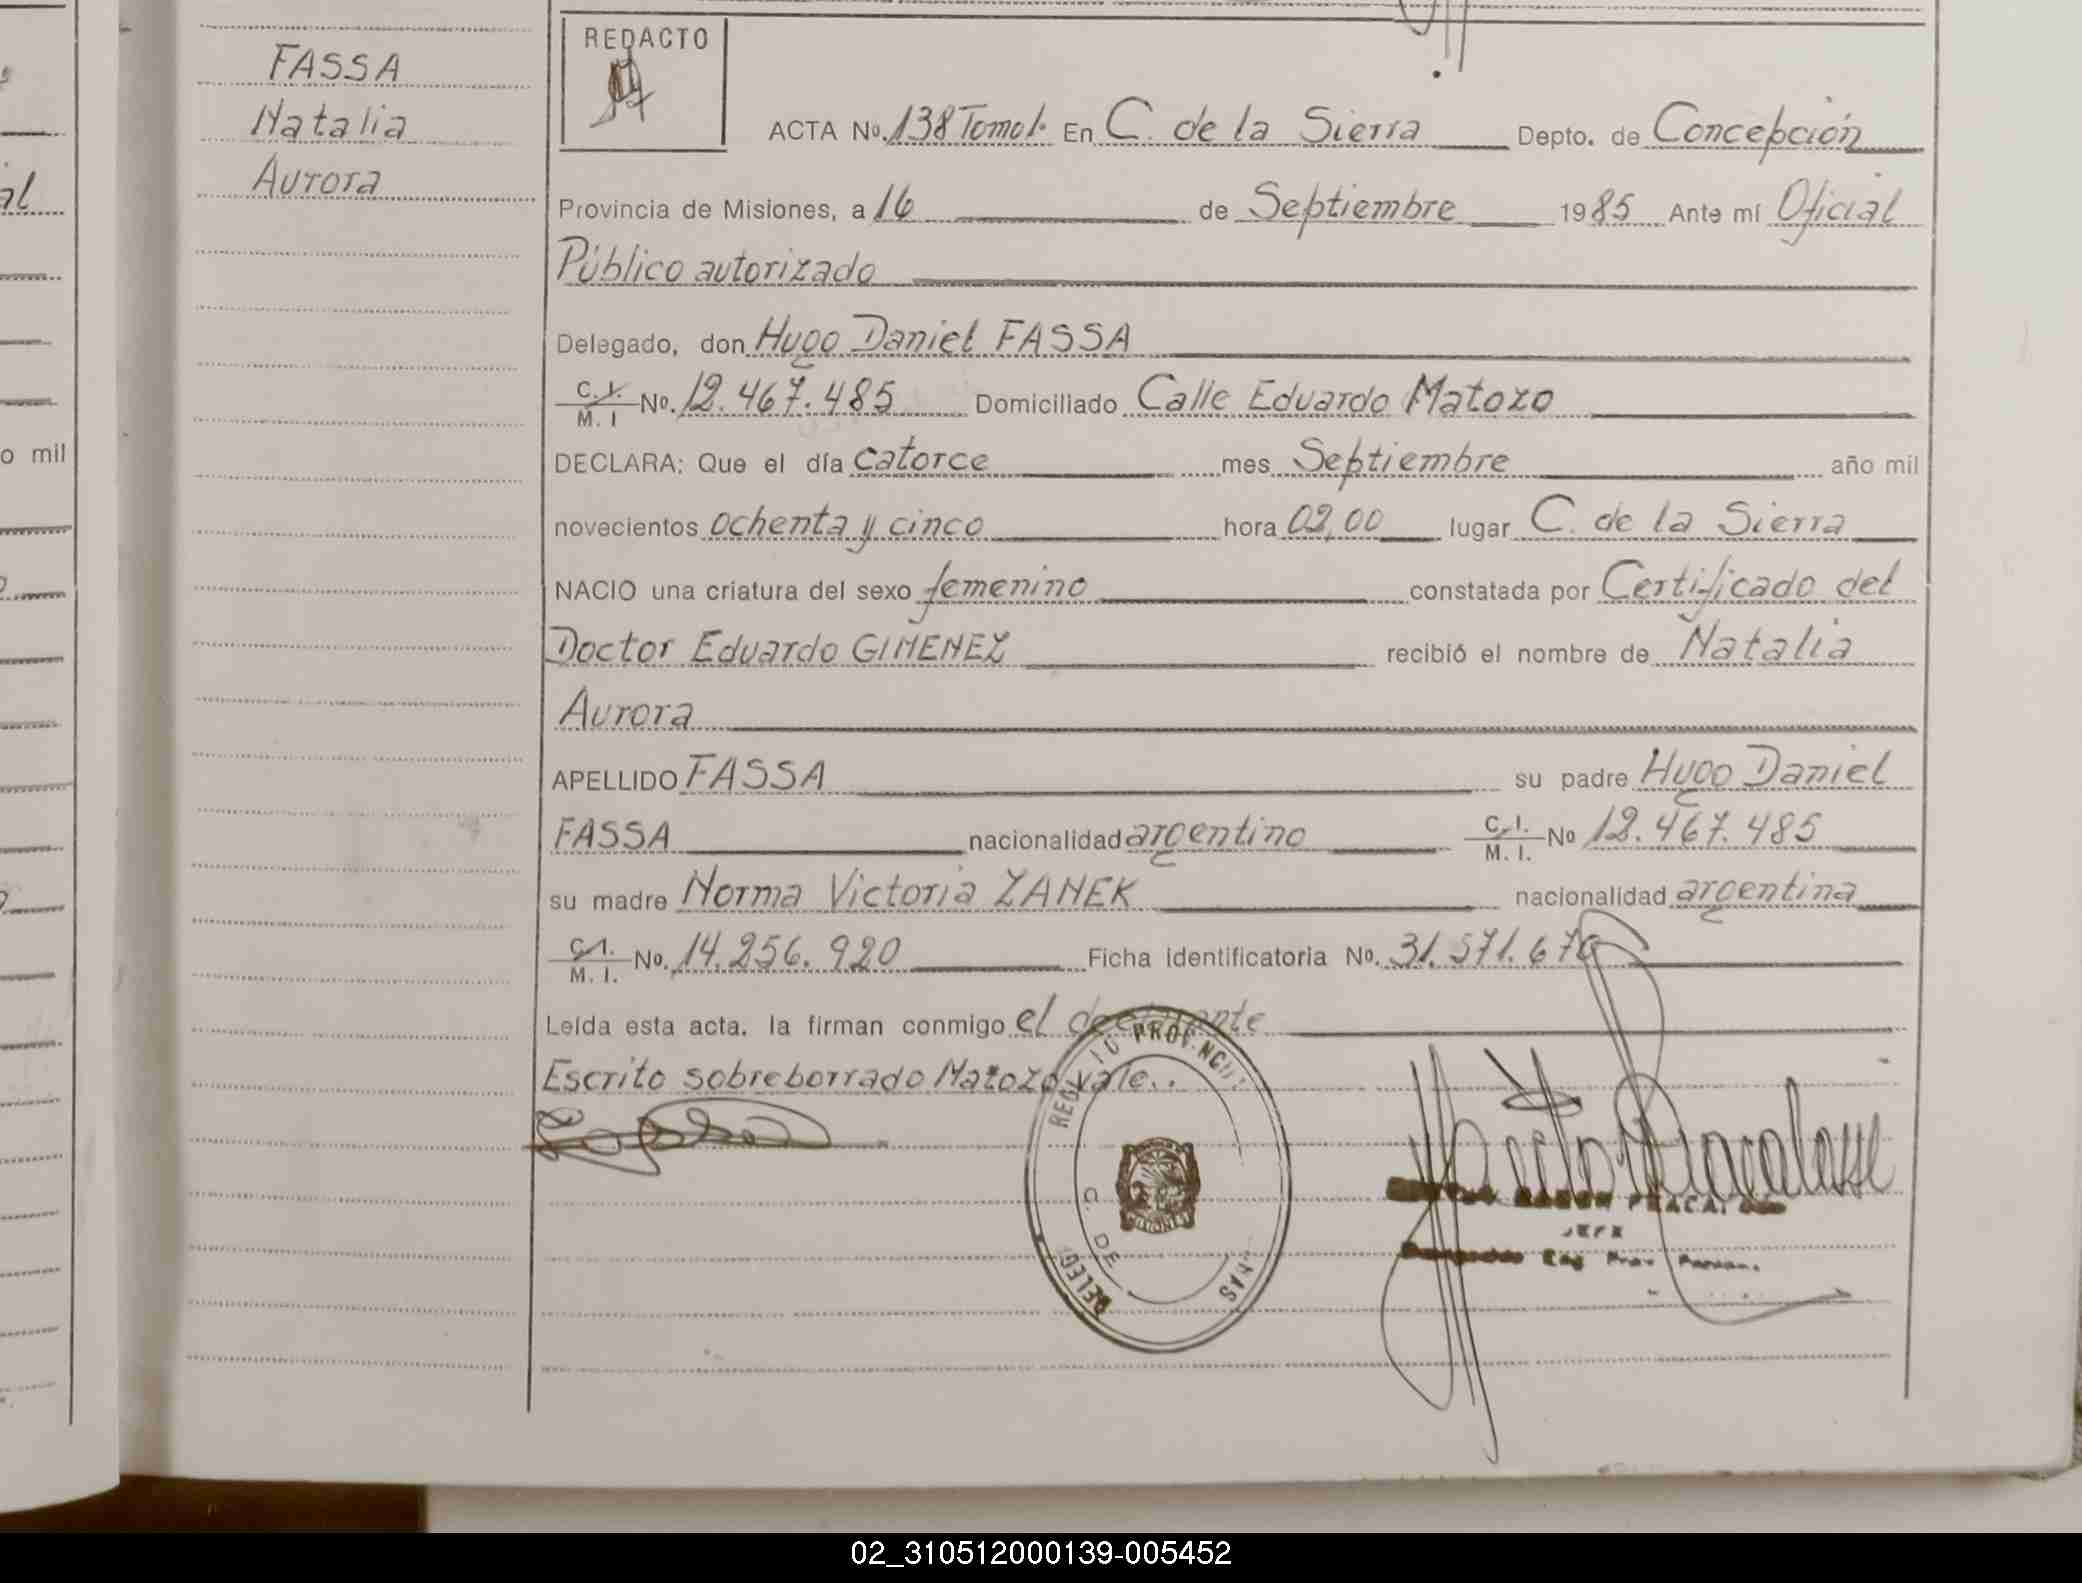 FASSA
Natalia
Aurora
al
o mil
REDACTO
ACTA No. 138 Tomo I. En C. de la Sierra Depto. de Concepción
Provincia de Misiones, a 16 de Septiembre 1985 Ante mí Oficial
Público autorizado
Delegado, don Hugo Daniel FASSA
C. I. / M. I No. 12.467.485 Domiciliado Calle Eduardo Matozo
DECLARA: Que el día catorce mes Septiembre año mil
novecientos ochenta y cinco hora 02,00 lugar C. de la Sierra
NACIO una criatura del sexo femenino constatada por Certificado del
Doctor Eduardo GIMENEZ recibió el nombre de Natalia
Aurora
APELLIDO FASSA su padre Hugo Daniel
FASSA nacionalidad argentino C. I. / M. I. No 12.467.485
su madre Norma Victoria ZANEK nacionalidad argentina
C. I. / M. I. No. 14.256.920 Ficha identificatoria No. 31.571.670
Leída esta acta, la firman conmigo el declarante
Escrito sobreborrado Matozo vale..
DE
JEFE
02_310512000139-005452